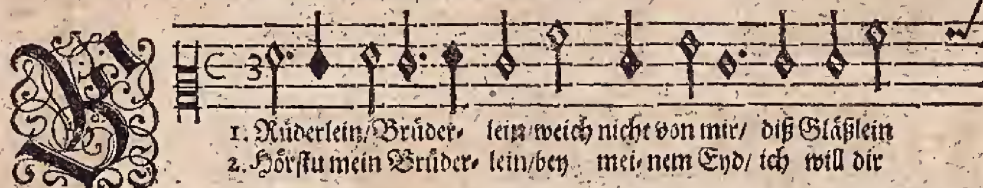 B
1. Rüderlein/Brüder- lein/weich nicht von mir/ diß Gläßlein
2. Hörstu mein Brüder- lein/bey mei- nem Eyd/ ich will dir